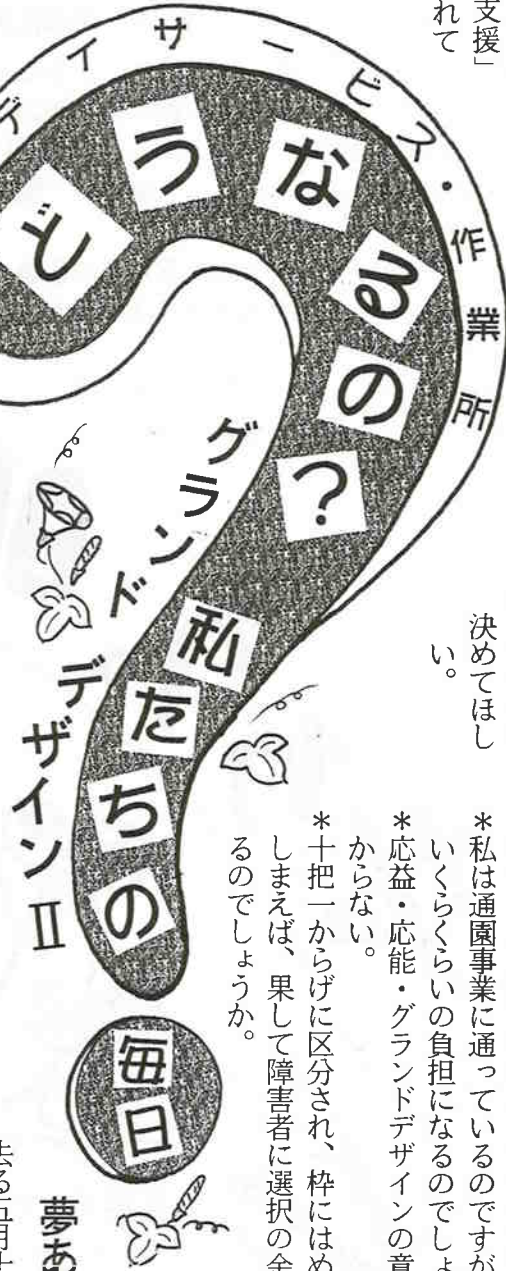 支援」
れて
デイサービス・作業所
どうなるの?
私たちの
毎日
グランドデザインⅡ
決めてほし
い。
*私は通園事業に通っているのですが
いくらくらいの負担になるのでしょ
*応益・応能・グランドデザインの意
からない。
*十把一からげに区分され、枠にはめ
しまえば、果して障害者に選択の余
るのでしょうか。
去る五月十
夢あ